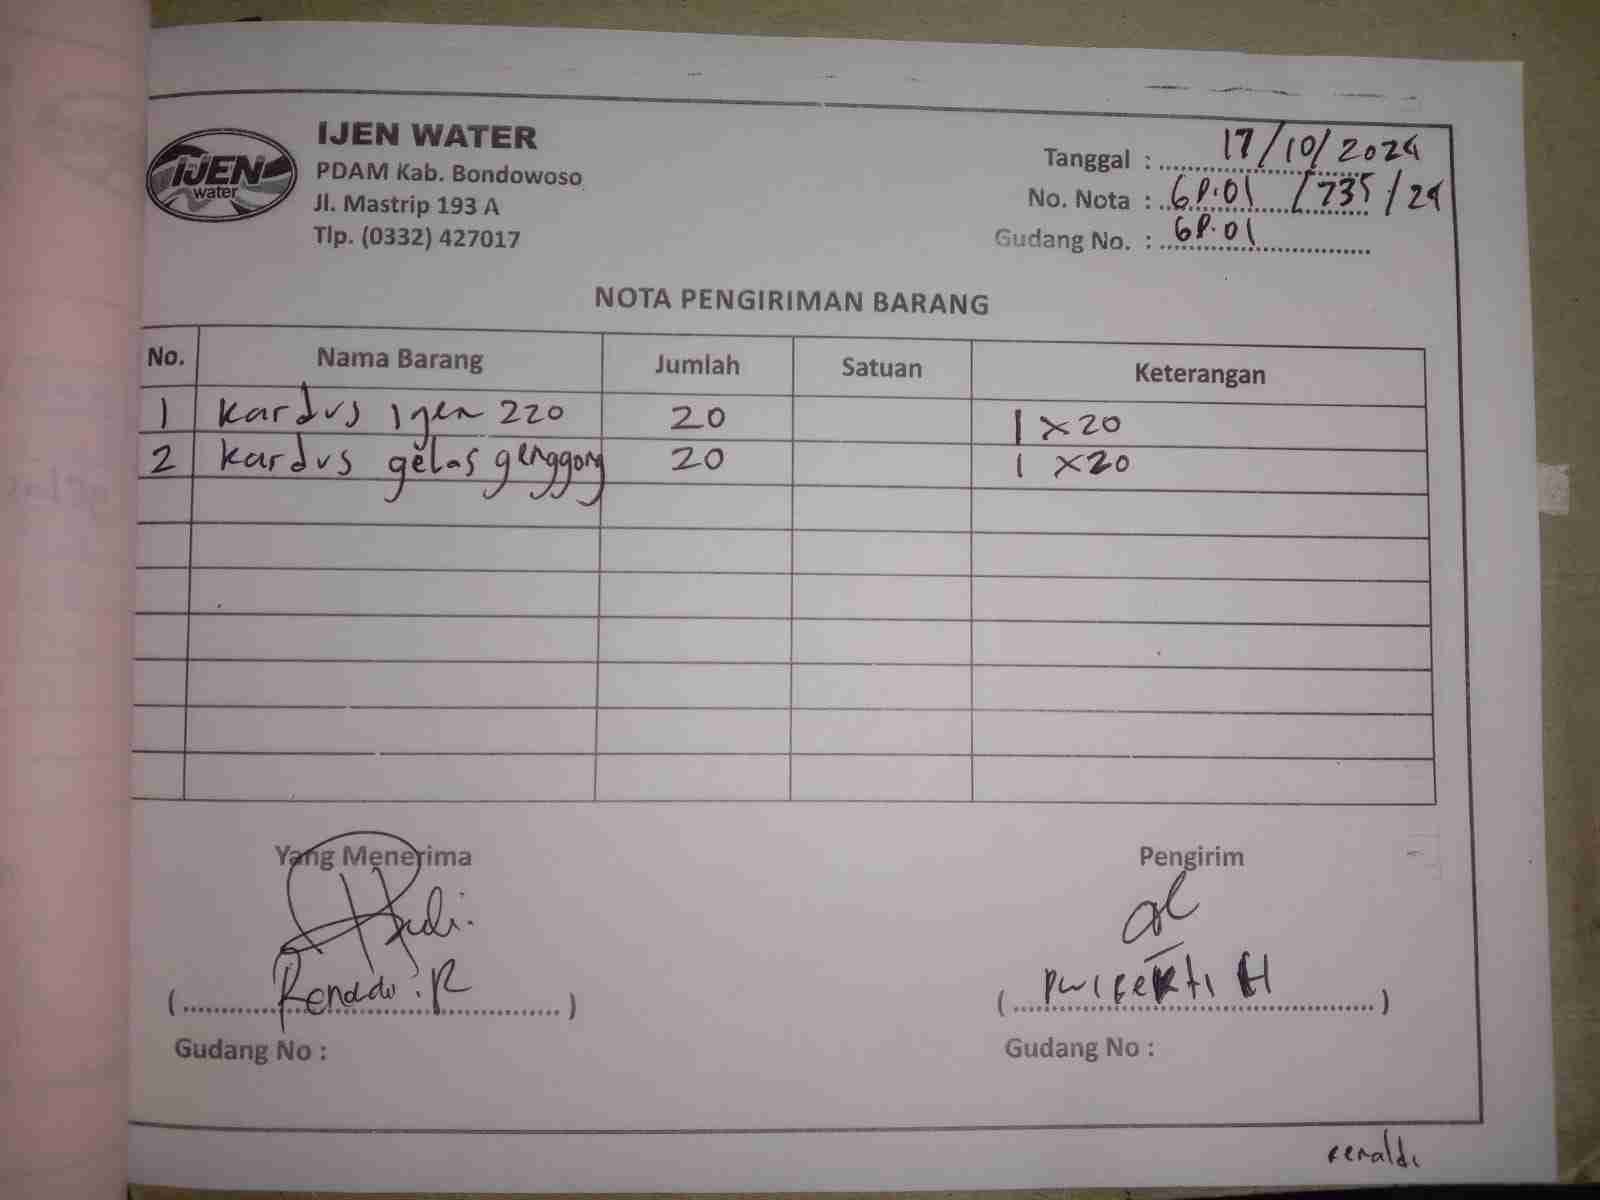 IJEN water
IJEN WATER
PDAM Kab. Bondowoso
Jl. Mastrip 193 A
Tlp. (0332) 427017
Tanggal : 17/10/2024
No. Nota : GP.01 /735/24
Gudang No. : GP.01
NOTA PENGIRIMAN BARANG
No. Nama Barang Jumlah Satuan Keterangan
1 kardus Ijen 220 20 1 x 20
2 kardus gelas genggong 20 1 x 20
Yang Menerima Pengirim
( Renaldi . R ) ( H )
Gudang No : Gudang No :
renaldi